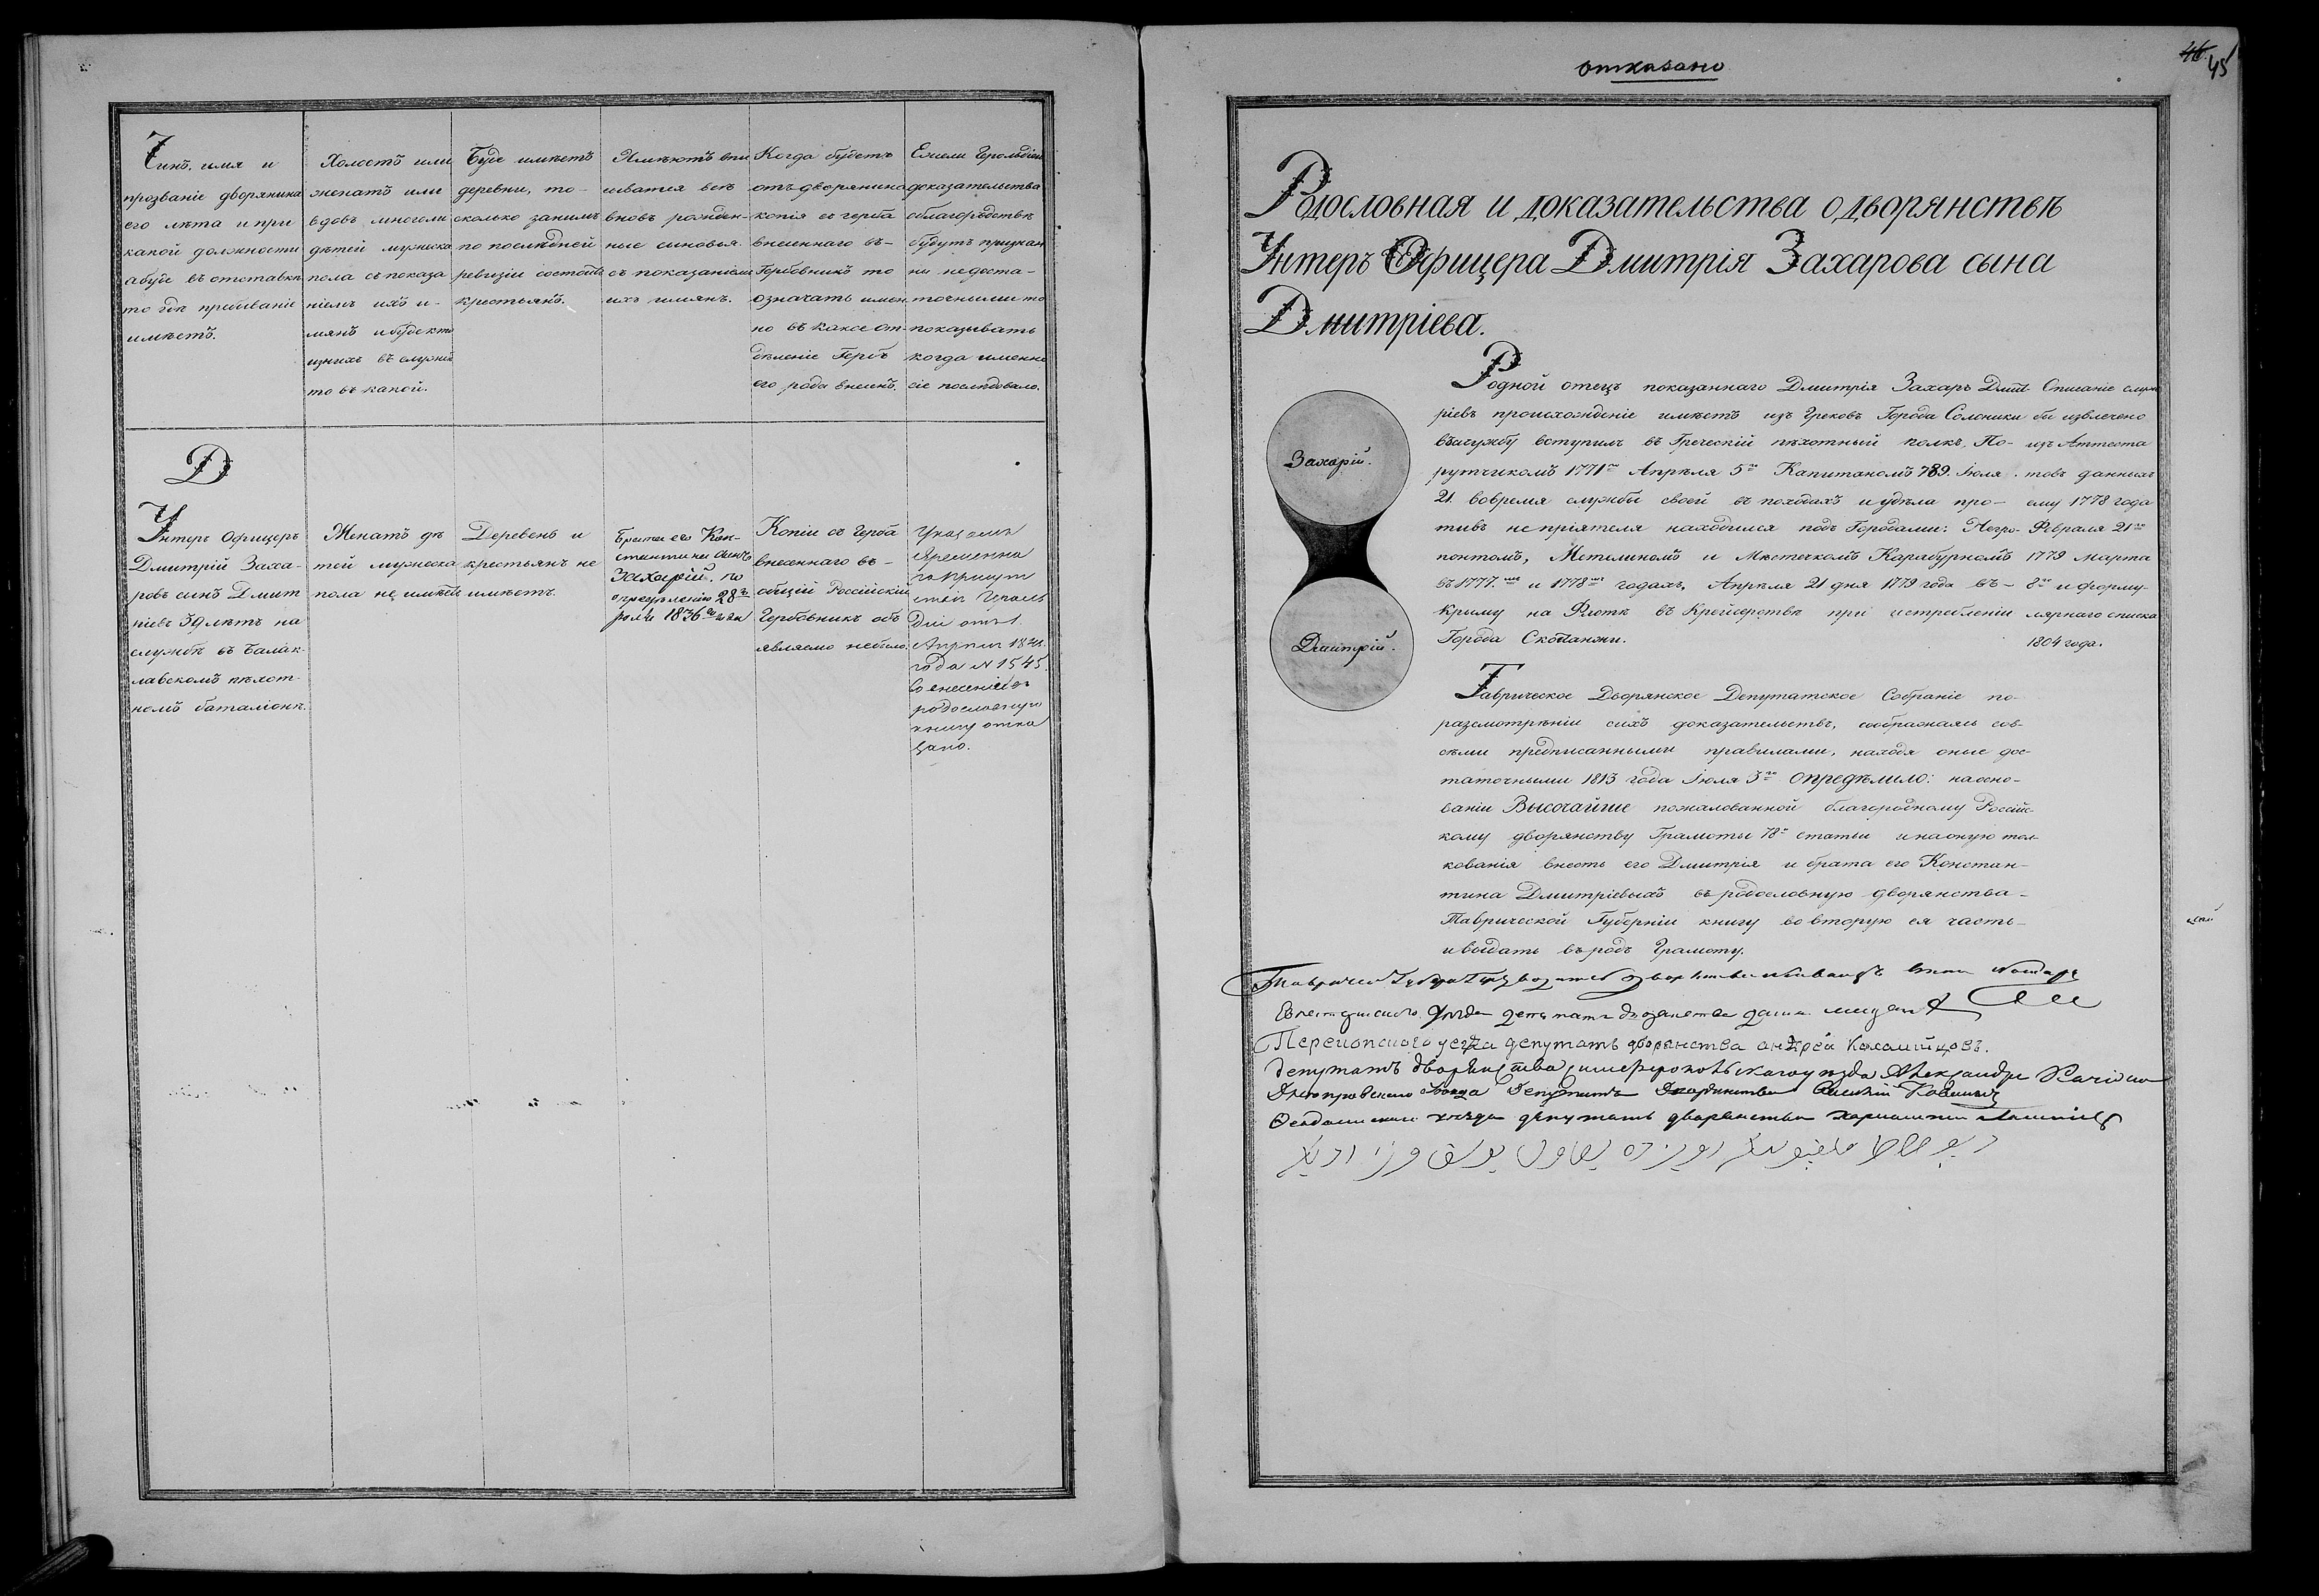 Чинъ, имя и
прозваніе дворянина
его лѣта и при
какой должности
а буде въ отставкѣ
то гдѣ пребываніе
имѣетъ.
Холостъ или
женатъ или
вдовъ многоли
дѣтей мужеска
пола съ показа
ніемъ ихъ и-
мянъ и буде кто
изнихъ въ службѣ
то въ какой.
Буде имѣетъ
деревни, то-
сколько занимъ
по послѣдней
ревизіи состоитъ
крестьянъ.
Имѣютъ впи
сыватся всѣ
вновь рожден-
ные сыновья
съ показаніемъ
ихъ имянъ.
Когда будетъ
отъ дворянина
копія съ герба
внесеннаго въ-
Гербовникъ то
означать имен
но въ какое от-
дѣленіе Гербъ
его рода внесенъ.
Ежели Герольдіею
доказательства
облагородствѣ
будутъ признан
ны недоста-
точными то
показывать
когда именно
сіе послѣдовало.
Д
Унтеръ Офицеръ
Дмитрій Заха-
ровъ сынъ Дмит
ріевъ 39 лѣтъ на
службѣ въ Балак-
лавскомъ пѣхот-
номъ баталіонѣ.
Женатъ дѣ
тей мужеска
пола не имѣетъ
Деревень и
крестьянъ не
имѣетъ.
Брата его Кон-
стантина сынъ
Захарій. по
опредѣленію 28го
1836го года
Копіи съ Герба
внесеннаго въ-
общій Россійскій
Гербовникъ объ
являемо небыло.
Указомъ
Временна
го Присут
ствія Героль
діи отъ 1
Апрѣля 1844
года N 1545
во внесеніи въ
родословную
книгу отка
зано.
отказано
46.
45
Родословная и доказательства о дворянствѣ
Унтеръ Офицера Дмитрія Захарова сына
Дмитріева.
Захарій.
Дмитрій.
Родной отецъ показаннаго Дмитрія Захаръ Дмит-
ріевъ происхожденіе имѣетъ изъ Грековъ Города Солоники
въслужбу вступилъ въ Греческій пѣхотный полкъ, По-
рутчикомъ 1771го Апрѣля 5го Капитаномъ 789. Іюля
21. вовремя службы своей въ походахъ и удѣла про-
тивъ непріятеля находился подъ Городами: Негро-
понтомъ, Метилиномъ и Мѣстечкомъ Карабурномъ
въ 1777.мъ и 1778мъ годахъ, Апрѣля 21 дня 1779 года въ-
Крыму на Флотѣ въ Крейсерствѣ при истребленіи
Города Скопанжи.
Списаніе служ
бы извлечено
изъ Аттеста
товъ данныхъ
ему 1778 года
Февраля 21го
1779 марта
8го и форму-
лярнаго списка
1804 года.
Таврическое Дворянское Депутатское Собраніе по-
разсмотрѣніи сихъ доказательствъ, соображаясь сов-
сѣми предписанными правилами, находя оные дос-
таточными 1813 года Іюля 3го опредѣлило: наосно-
ваніи Высочайше пожалованной благородному Россійс-
кому дворянству Грамоты 78й статьи инаоную тол-
кованія внесть его Дмитрія и брата его Констан-
тина Дмитріевыхъ въ родословную дворянства-
Таврической Губерніи книгу во вторую ея часть-
ивыдать въродъ Грамоту.
Перекопскаго уезда депутатъ дворянства андрей
депутатъ дворянства симферопольскагоуезда Александръ
Днепровскаго уезда Депутатъ Дворянства
Феодосискаго уезда депутатъ дворянства